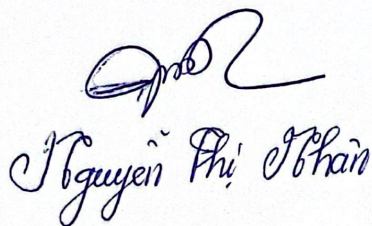 Nguyễn Thị Nhàn